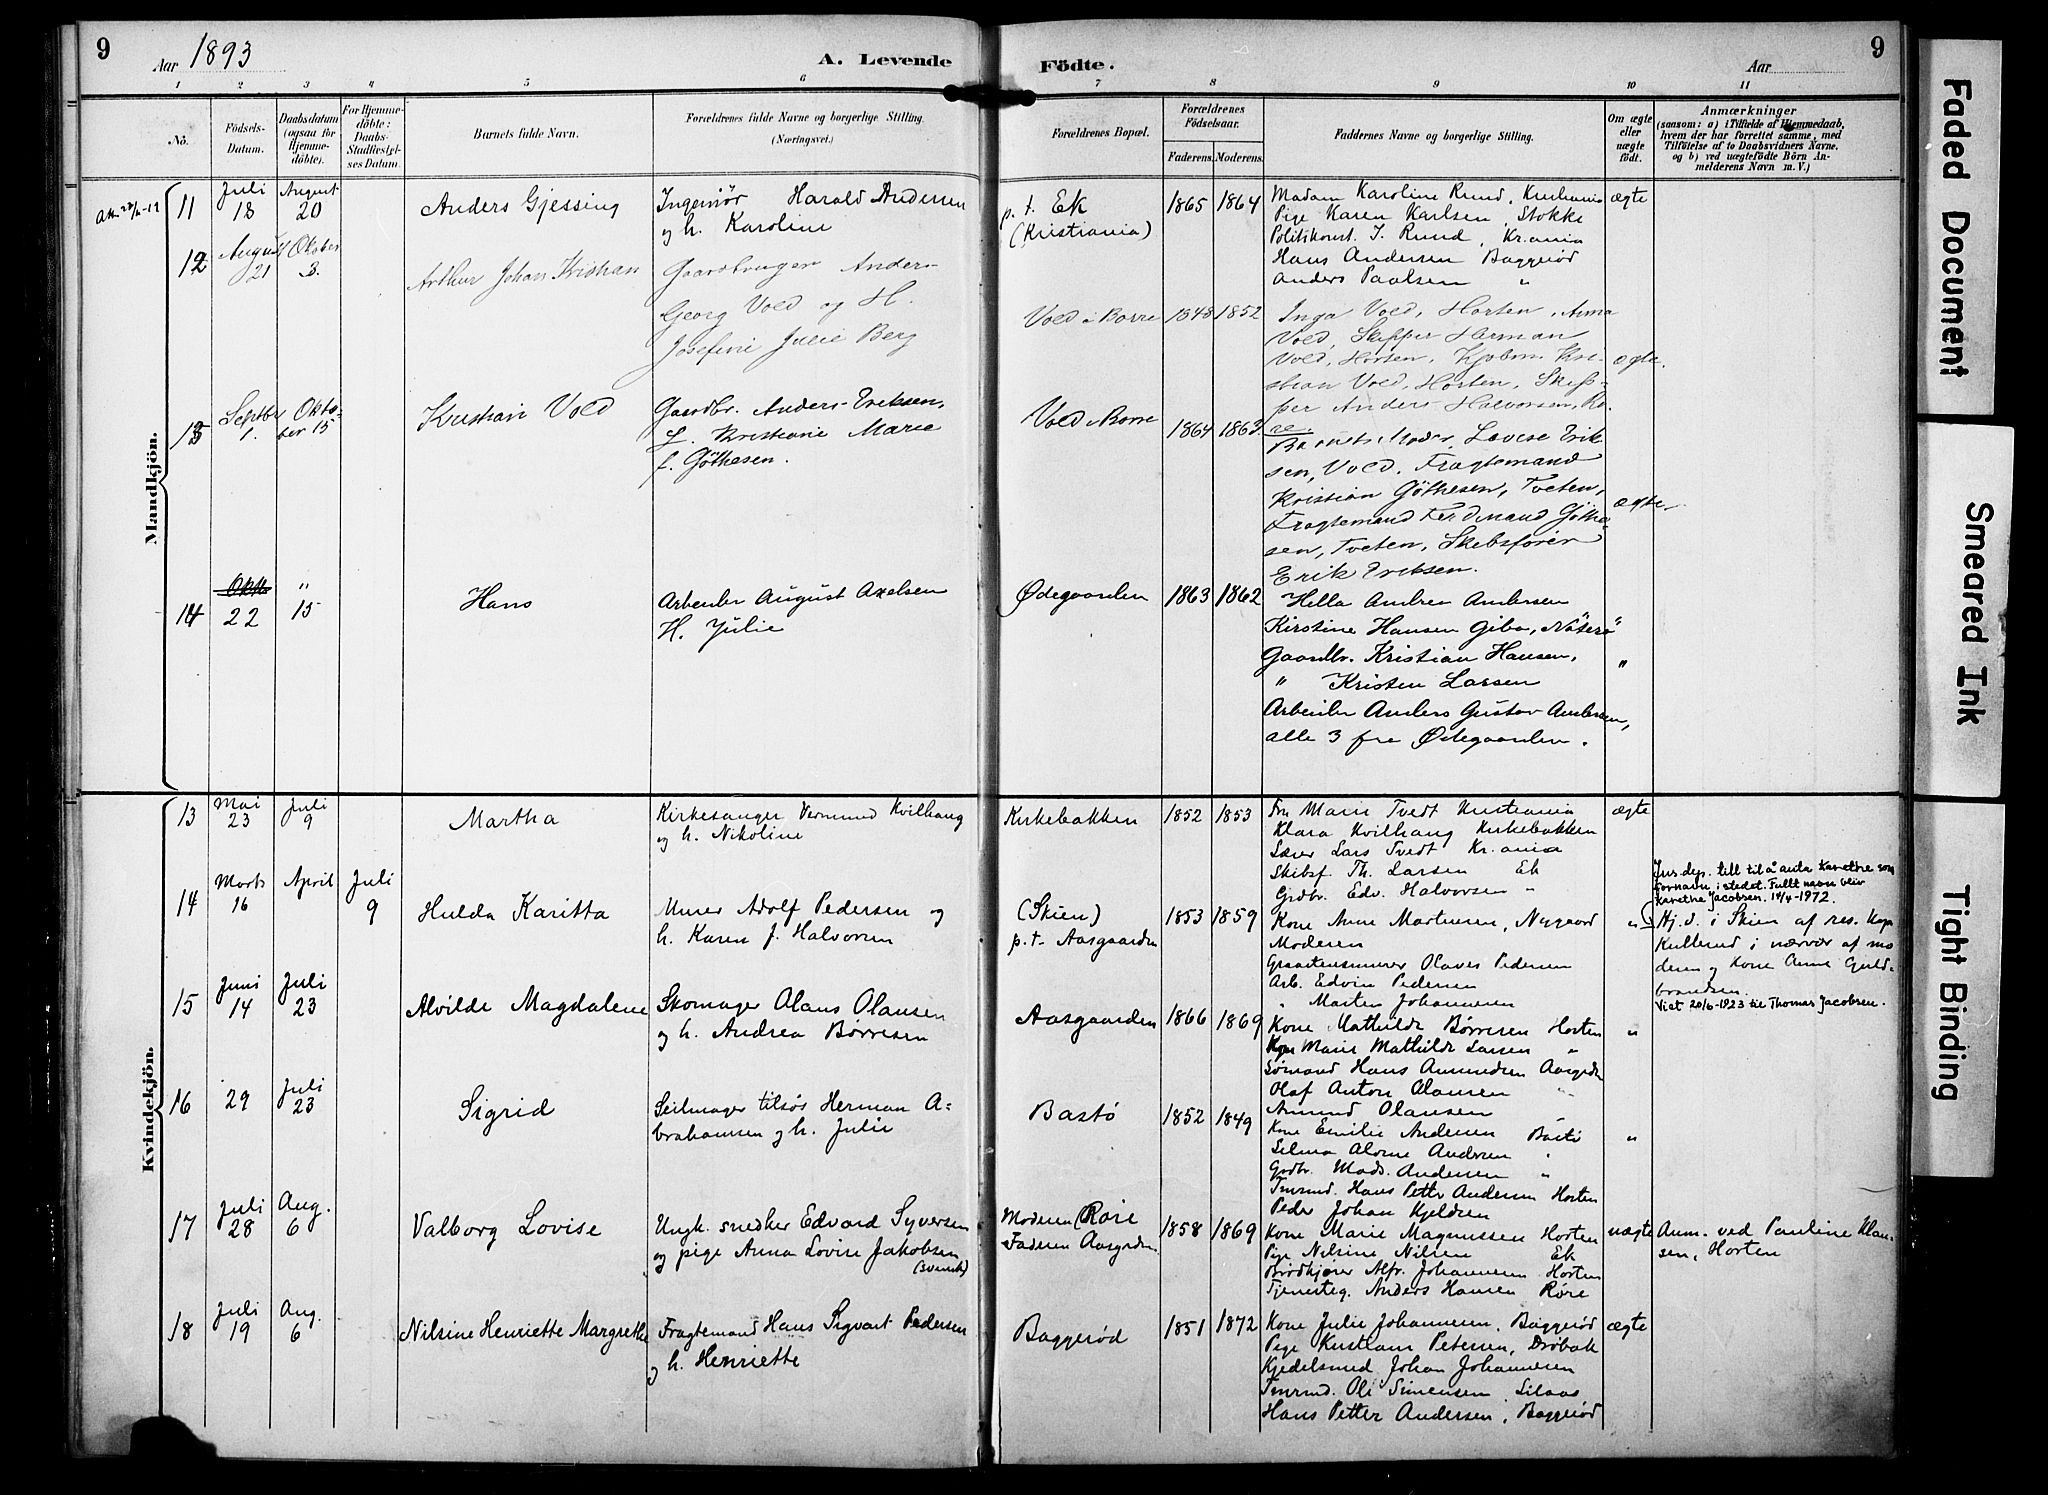 9
Aar 1893
A. Levende
Födte.
Aar
9
1 2 3 4 5 6 7 8 9 10 11
No.
Födsels-Datum.
Daabsdatum (ogsaa for Hjemme-döbte).
For Hjemme-döbte: Daabs-Stadfæstel-ses Datum.
Barnets fulde Navn.
Forældrenes fulde Navne og borgerlige Stilling.
(Næringsvei.)
Forældrenes Bopæl.
Forældrenes Födselsaar.
Faderens. Moderens.
Faddernes Navne og borgerlige Stilling.
Om ægte eller uægte födt.
Anmærkninger
(saasom: a) i Tilfælde af Hjemmedaab,
hvem der har forrettet samme, med
Tilföielse af to Daabsvidners Navne.
og b) ved uægtefödte Börn An-
melderens Navn m. V.)
Mandkjön.
11 Juli 18 August 20 Anders Gjessing
Ingeniør Harald Andersen
og h. Karoline
p. t. Ek
(Kristiania)
1865 1864
Madam Karoline Rund, Kristiania
Pige Karen Karlsen, Stokke
Politikonst. J. Rund, Kr.ania
Hans Andersen Baggerød
Anders Paalsen "
ægte
12 August 21 Oktober 3. Arthur Johan Kristian
Gaardbruger Anders
Georg Vold og H.
Josefine Julie Berg
Vold i Borre 1848 1852
Inga Vold, Horten, Anna
Vold, Skipper Herman
Vold, Horten, Kjøbm. Kri-
stian Vold, Horten, Skip-
per Anders Halvorsen,
ægte.
13 Septbr 1. Oktober 15 Kristian Vold
Gaardbr. Anders Eriksen,
H. Kristiane Marie
f. Göthesen.
Vold i Borre 1864 1863
Barnets Moder, Lovise Erik
sen, Vold. Fragtemand
Kristian Göthesen, Tveten,
Fragtemand Ferdinand Göthe-
sen, Tveten, Skibsfører
Erik Eriksen.
ægte
14 22 " 15 Hans
Arbeider August Axelsen
H. Julie
Ødegaarden 1863 1862
Hella Andrea Andersen
Kirstine Hansen Gibø, Nøterø
Gaardbr. Kristian Hansen,
" Kristen Larsen
Arbeider Anders Gustav Andersen,
alle 3 fra Ødegaarden.
"
Kvindekjön.
13 Mai 23 Juli 9 Martha
Kirkesanger Vermund Kvilhaug
og h. Nikoline
Kirkebakken 1852 1853
Fru Marie Tvedt Kristiania
Klara Kvilhaug Kirkebakken
Lærer Lars Tvedt Kr.ania
Skibsf. Th. Larsen Ek
Grdbr. Edv. Halvorsen "
ægte
14 Marts 16 April Juli 9 Hulda Karitta
Murer Adolf Pedersen og
h. Karen f. Halvorsen
(Skien)
p.t. Aasgaarden
1853 1859
Kone Anne Martinsen, Nygaard
Moderen
Graastensmurer Olaves Pedersen
Arb. Edvin Pedersen
" Marten Johannesen
"
Jus.dep. till til å anta Karethe som
fornavn i stedet. Fullt navn blir
Karethe Jacobsen. 14/4-1972.
Hj.d. i Skien af res. Kap.
Kullerud i nærvær af mo
deren og Kone Anne Guld-
brandsen.
Viet 20/6-1923 til Thomas Jacobsen.
15 Juni 14 Juli 23 Alvilde Magdalene
Skomager Olaus Olausen
og h. Andrea Børresen
Aasgaarden 1866 1869
Kone Mathilde Børresen Horten
Marie Mathilde Larsen "
Sømand Hans Amundsen Aasgrdn
Olaf Anton Olausen "
Amund Olausen "
"
16 29 Juli 23 Sigrid
Seilmager tilsøs Herman A-
brahamsen og h. Julie
Bastø 1852 1849
Kone Emilie Andersen Bastø
Selma Alvine Andersen "
Grdbr. Mads. Andersen "
Tmrmd. Hans Petter Andersen Horten
Peder Johan Kjeldsen
"
17 Juli 28 Aug. 6 Valborg Lovise
Ungk. snedker Edvard Syversen
og pige Anna Lovise Jakobsen
(svensk)
Moderen Røre
Faderen Aasgrden
1858 1869
Kone Marie Magnussen Horten
Pige Nilsine Nilsen Ek
Brødkjører Alfr. Johannesen Horten
Tjenesteg. Anders Hansen Røre
uægte
Anm. ved Pauline Klau-
sen, Horten
18 Juli 19 Aug. 6 Nilsine Henriette Margrethe
Fragtemand Hans Sigvart Pedersen
og h. Henriette
Baggerød 1851 1872
Kone Julie Johannesen, Baggerød
Pige Kristiane Petersen, Drøbak
Kjedelsmed Johan Johannesen
Tmrmd. Ole Simensen,
Hans Petter Andersen, Baggerød
ægte
Faded Document
Smeared Ink
Tight Binding